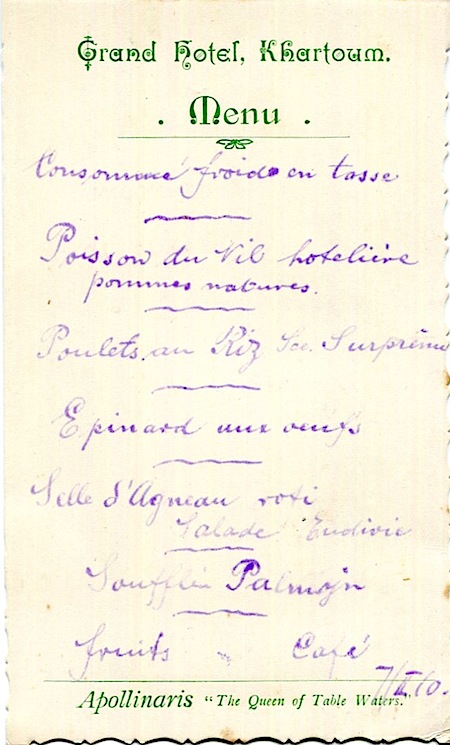 Grand Hotel, Khartoum.
. Menu .
Consommé froid en tasse
Poisson du Nil hotelière
pommes natures.
Poulets au Riz Sce. Surprême
Epinard aux oeufs
Selle d'Agneau roti
Salade Endivie
Soufflée
fruits Café
7/II/10.
Apollinaris "The Queen of Table Waters."